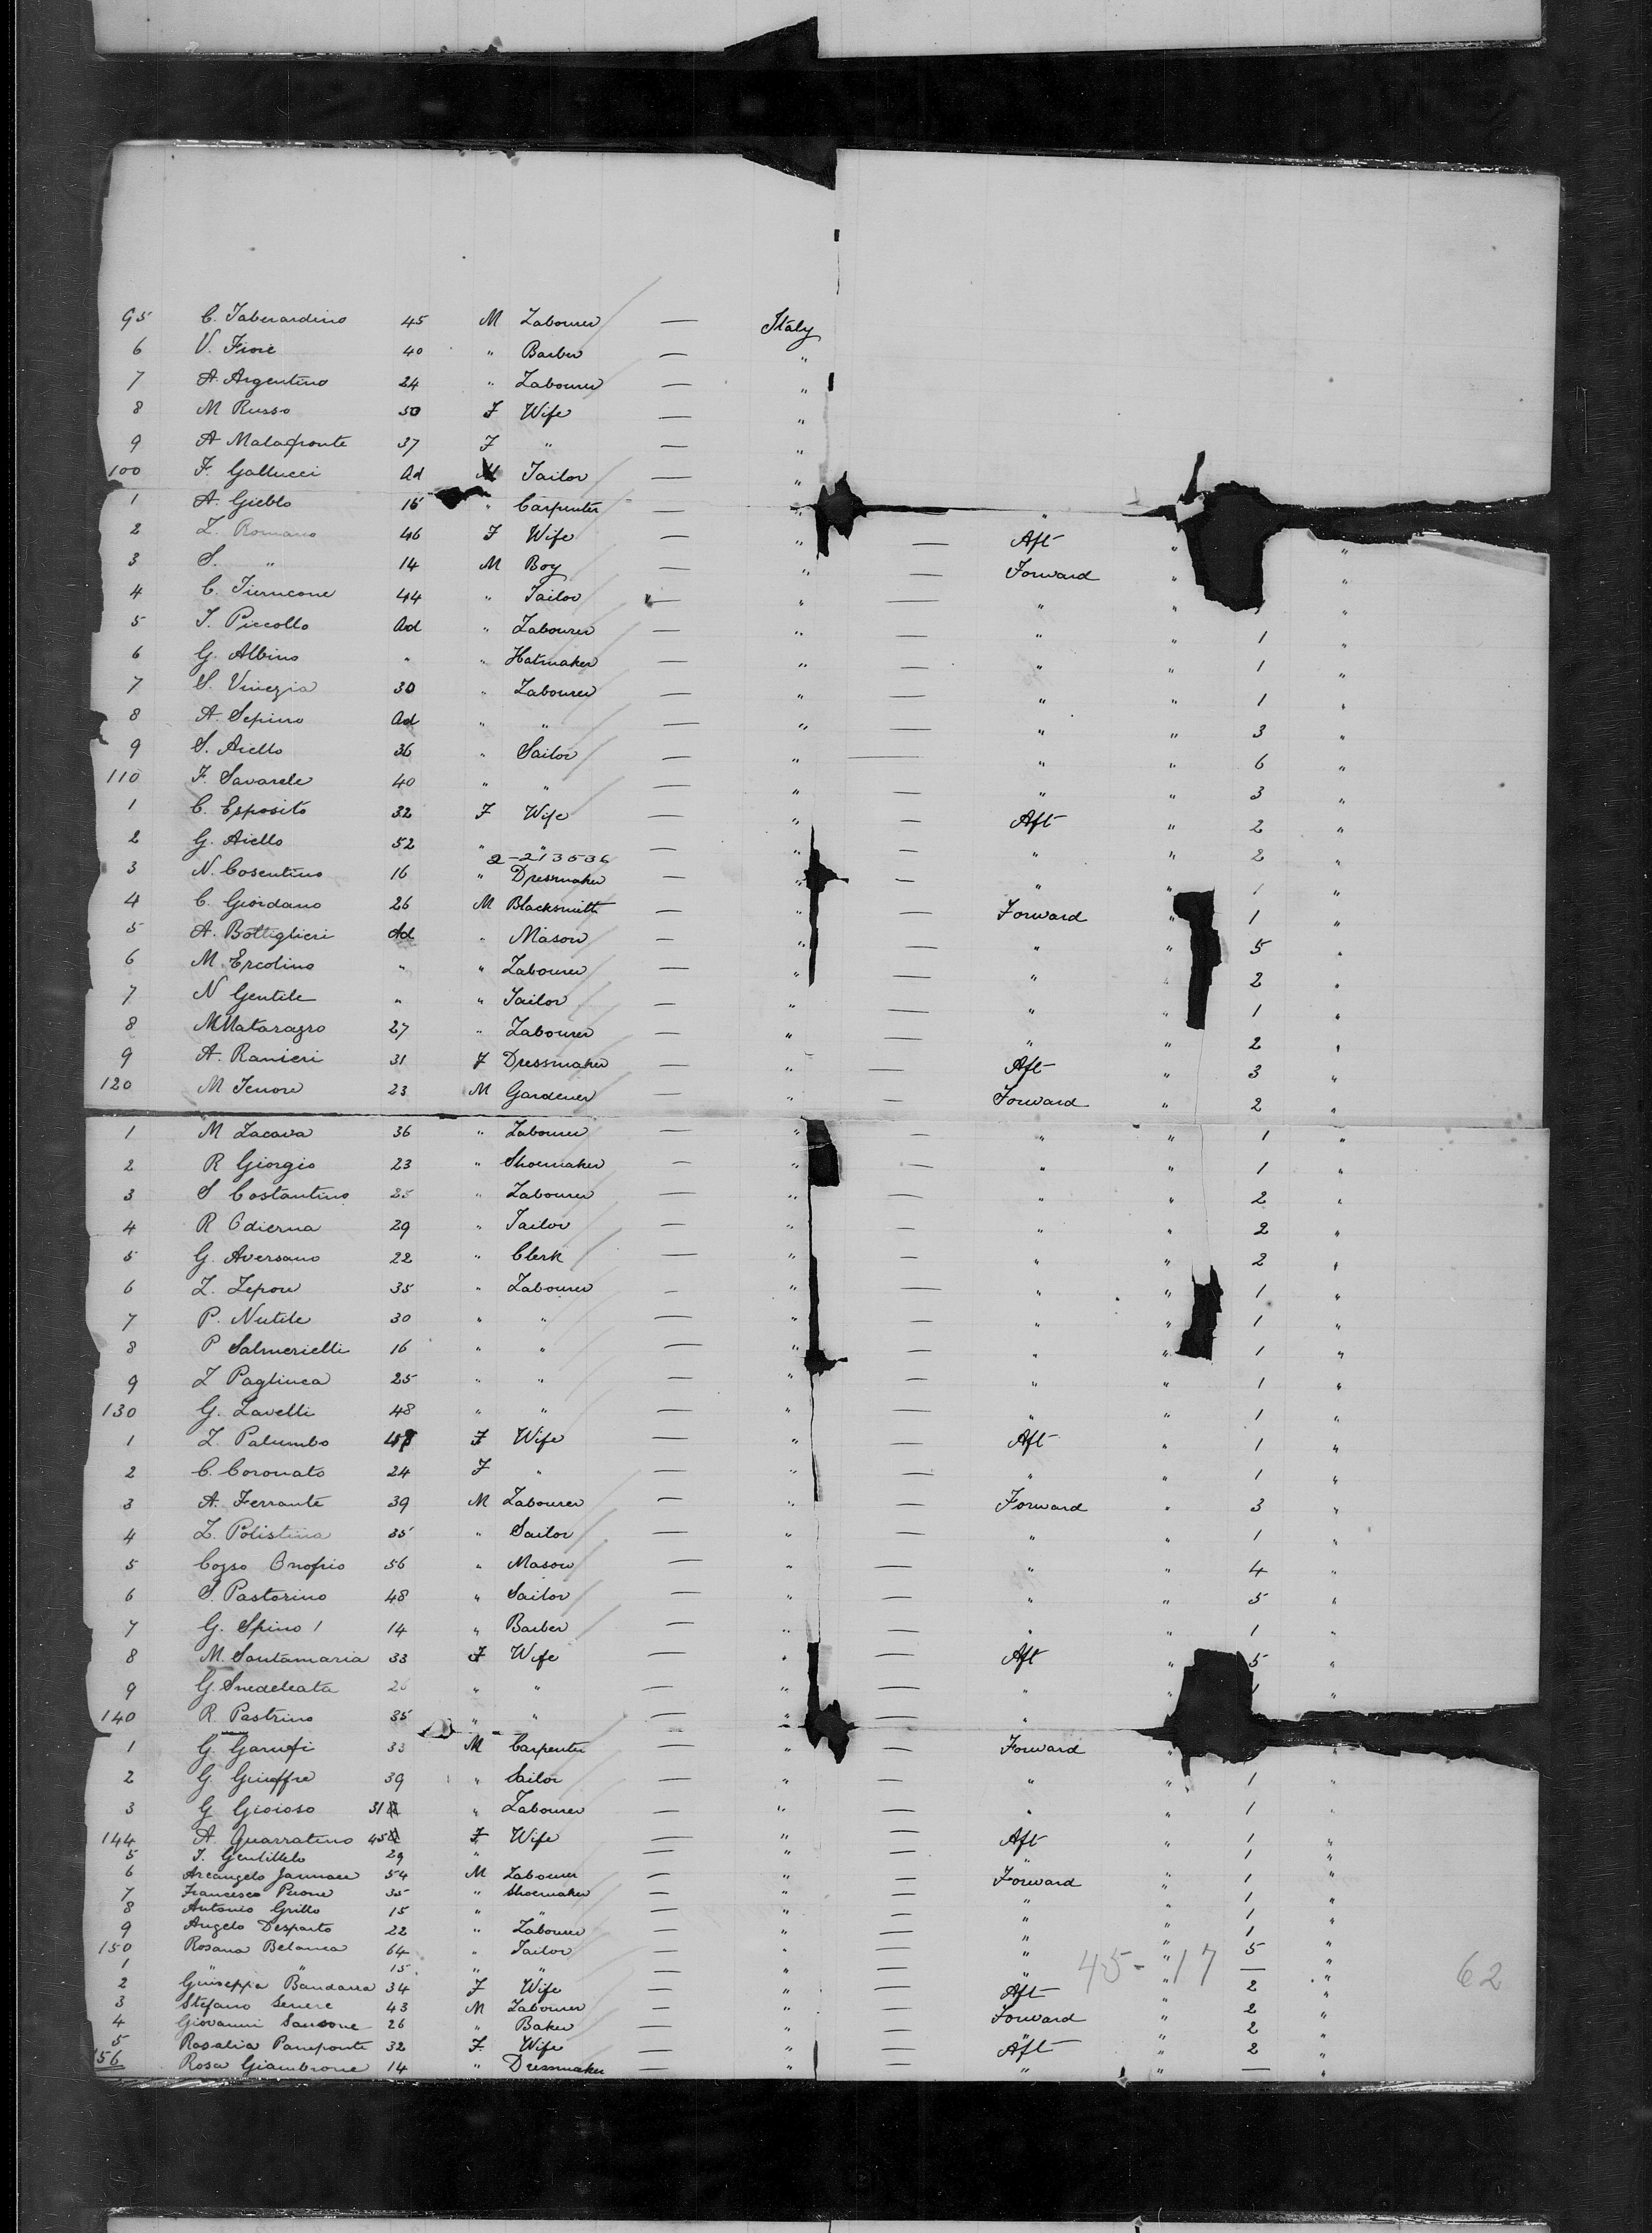 95 C. Taberardino 45 M Labourer — Italy
6 V. Fiore 40 " Barber — "
7 A. Argentino 24 " Labourer — "
8 M Russo 50 F Wife — "
9 A Malafronte 37 F " — "
100 F. Gallucci Ad M Tailor — "
1 A. Gieblo 16 " Carpenter — " "
2 L. Romano 46 F Wife — " — Aft " "
3 S. " 14 M Boy — " — Forward " "
4 C. Tierncone 44 " Tailor — " — " " "
5 T. Piccollo Ad " Labourer — " — " " 1 "
6 G. Albino " " Hatmaker — " — " " 1 "
7 S. Vinezia 30 " Labourer — " — " " 1 "
8 A. Sepino Ad " " — " — " " 3 "
9 S. Aiello 36 " Sailor — " — " " 6 "
110 F. Savarele 40 " " — " — " " 3 "
1 C. Esposito 32 F Wife — " — Aft " 2 "
2 G. Aiello 52 " " — " — " " 2 "
2-213536
3 N. Cosentino 16 " Dressmaker — " — " " 1 "
4 C. Giordano 26 M Blacksmith — " — Forward " 1 "
5 A. Bottiglieri Ad " Mason — " — " " 5 "
6 M. Ercolino " " Labourer — " — " " 2 "
7 N Gentile " " Tailor — " — " " 1 "
8 M Matarazzo 27 " Labourer — " — " " 2 "
9 A. Ranieri 31 F Dressmaker — " — Aft " 3 "
120 M Tenore 23 M Gardener — " — Forward " 2 "
1 M Lacava 36 " Labourer — " — " " 1 "
2 R Giorgio 23 " Shoemaker — " — " " 1 "
3 S Costantino 25 " Labourer — " — " " 2 "
4 R Odierna 29 " Tailor — " — " " 2 "
5 G. Aversano 22 " Clerk — " — " " 2 "
6 L. Lepore 35 " Labourer — " — " " 1 "
7 P. Nutile 30 " " — " — " " 1 "
8 P Salmerielli 16 " " — " — " " 1 "
9 L Pagliuca 25 " " — " — " " 1 "
130 G. Lavelli 48 " " — " — " " 1 "
1 L. Palumbo 48 F Wife — " — Aft " 1 "
2 C. Coronato 24 F " — " — " " 1 "
3 A. Ferrante 39 M Labourer — " — Forward " 3 "
4 L. Polistina 35 " Sailor — " — " " 1 "
5 Cozso Onofrio 56 " Mason — " — " " 4 "
6 S. Pastorino 48 " Sailor — " — " " 5 "
7 G. Spino 14 " Barber — " — " " 1 "
8 M. Santamaria 33 F Wife — " — Aft " 5 "
9 G. Snedeleata 26 " " — " — " " 1 "
140 R. Pastrino 35 " " — " — "
1 G. Garufi 33 M Carpenter — " — Forward " "
2 G. Giuffre 39 " Sailor — " — " " 1 "
3 G Gioioso 31 " Labourer — " — " " 1 "
144 A. Quarratino 45 F Wife — " — Aft " 1 "
5 T. Gentillelo 29 " — " — " 1 "
6 Arcangelo Jannace 54 M Labourer — " — Forward " 1 "
7 Francesco Perone 35 " Shoemaker — " — " " 1 "
8 Antonio Grillo 15 " " — " — " " 1 "
9 Angelo Desparto 22 " Labourer — " — " " 1 "
150 Rosana Belanca 64 " Tailor — " — " " 5 "
1 " " 15 " " — " — " " — "
45-17 62
2 Giuseppa Bandarra 34 F Wife — " — Aft " 2 "
3 Stefano Senere 43 M Labourer — " — Forward " 2 "
4 Giovanni Sansone 26 " Baker — " — " " 2 "
5 Rosalia Paneponte 32 F. Wife — " — Aft " 2 "
156 Rosa Giambrone 14 " Dressmaker — " — " " — "